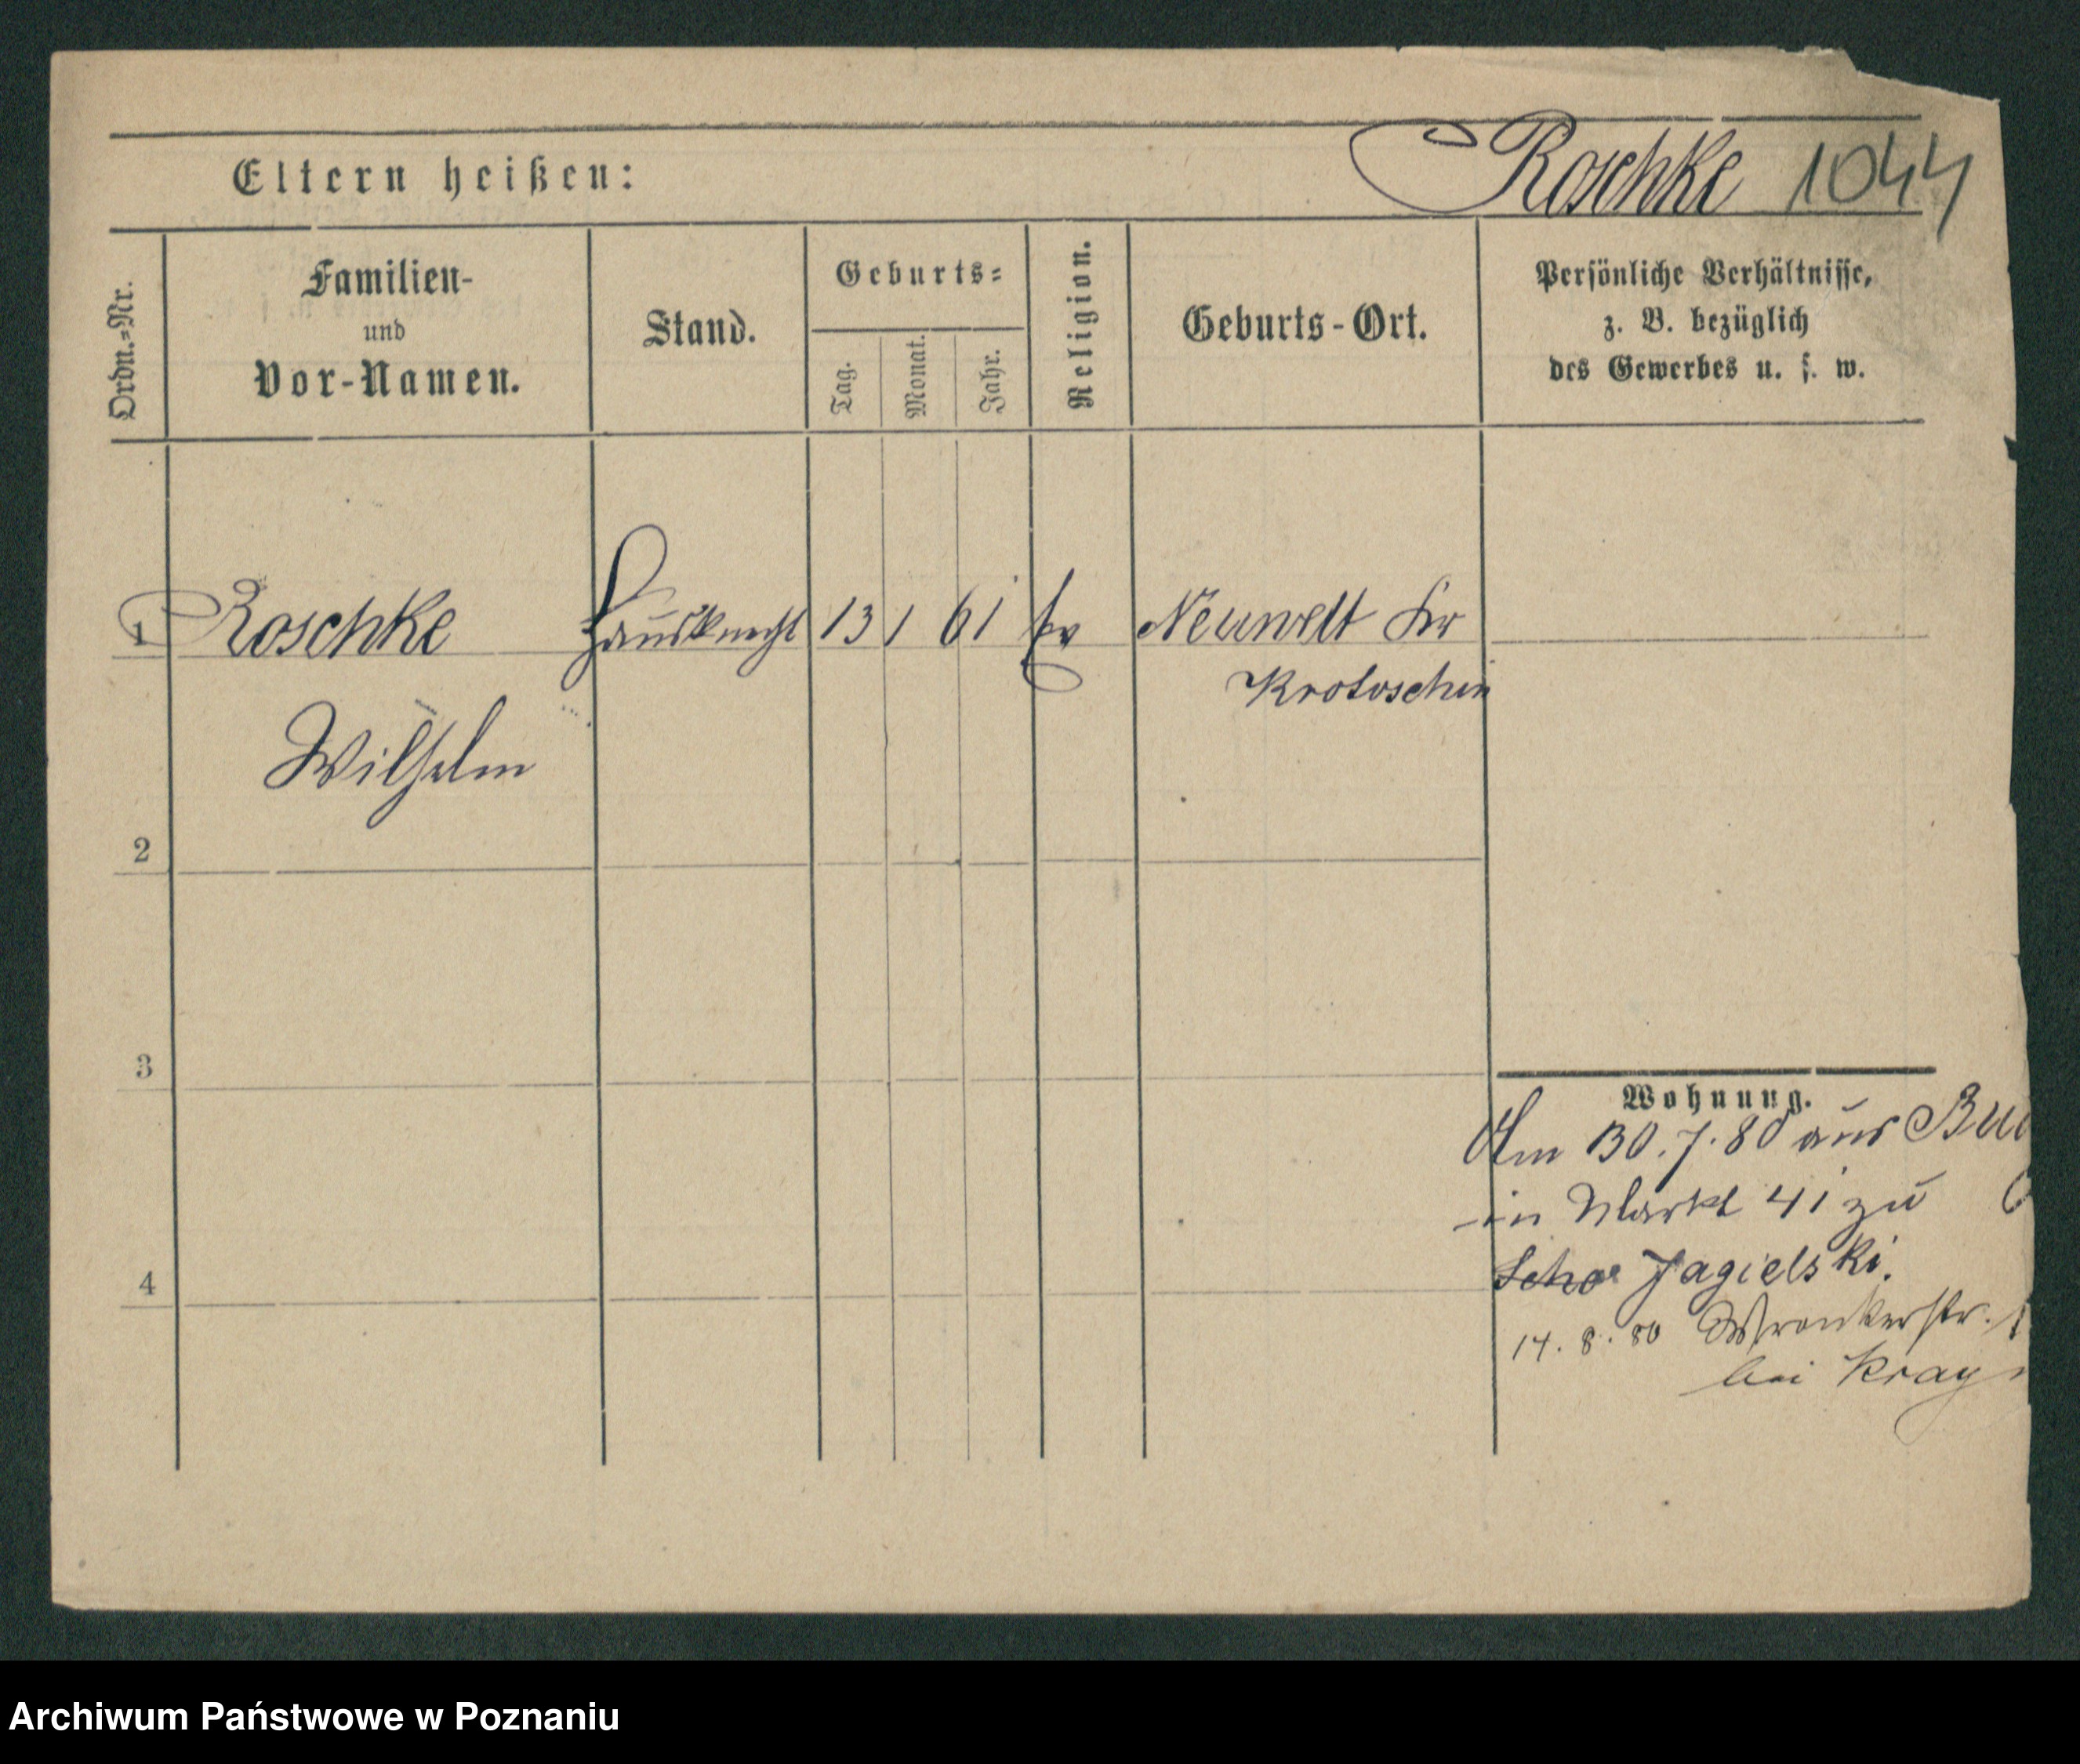 Eltern heißen:
Roschke 1044
Ordn.=Nr.
Familien-
und
Vor-Namen.
Stand.
Geburts=
Tag.
Monat.
Jahr.
Religion.
Geburts-Ort.
Persönliche Verhältnisse,
z. B. bezüglich
des Gewerbes u. s. w.
1 Roschke Hausknecht 13 1 61 Ev Neuwelt Kr
Krotoschin
Wilhelm
2
3
4
Wohnung.
Am 30.7.80 aus
in Markt 41 zu
Jagielski.
14.8.80 Wronkerstr.
bei
Archiwum Państwowe w Poznaniu